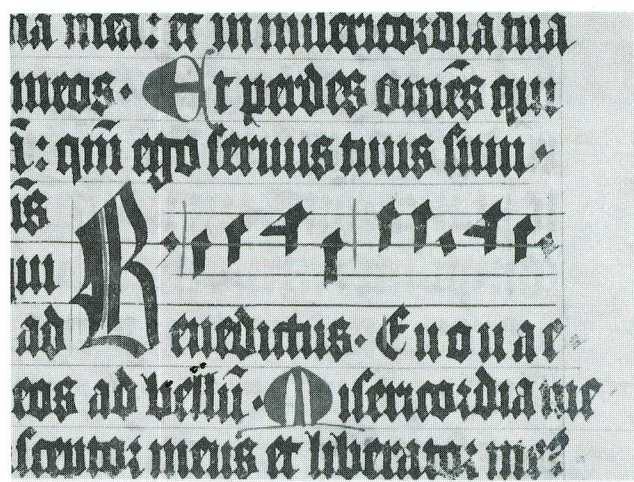 na mea: et in misericordia tua
meos. Et perdes om̄es qui
ā: qm̄ ego seruus tuus sum.
ad Benedictus. Euouae
eos ad bellū. Misericordia me
sceptor meus et liberator meꝰ